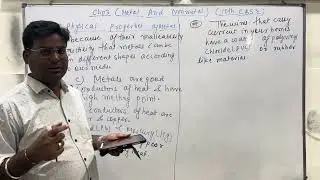 Chp:3 (Metal And Nonmetal) (10th CLASS)
Physical Properties
because of their malleability
ductility that metals can be
different shapes according
to our needs
c) Metals are good
conductors of heat & have
high melting point.
conductors of heat are
& copper.
(Pb) & Mercury (Hg)
poor
of heat
The wires that carry
current in your homes
have a coat of polyvinyl
chloride (PVC) or rubber
like material